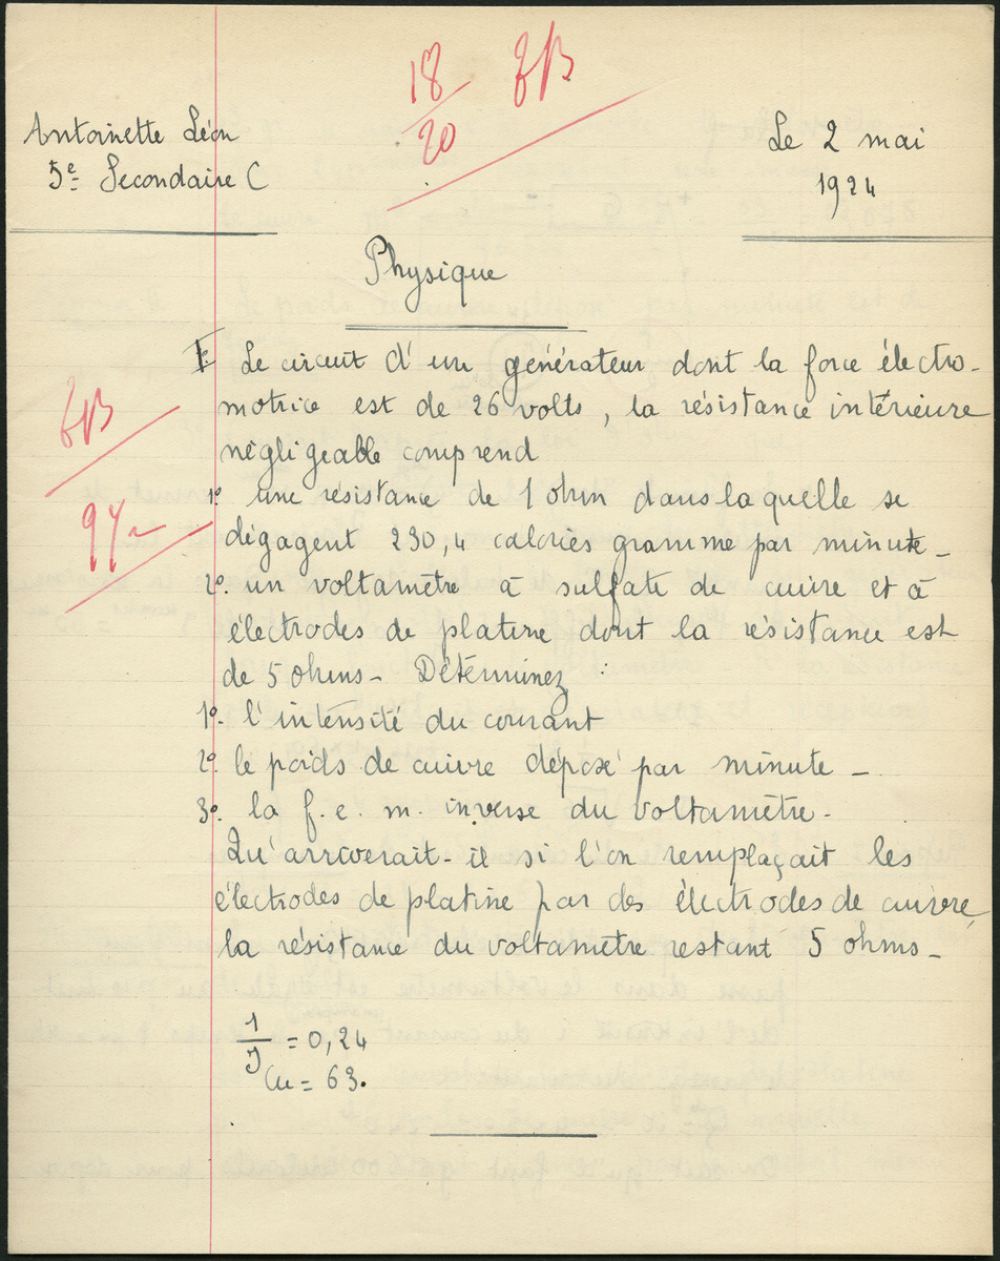 18 TB
20
Antoinette Léon
5e Secondaire C
Le 2 mai
1924
Physique
I Le circuit d'un générateur dont la force électro-
motrice est de 26 volts, la résistance intérieure
négligeable comprend
TB
1º. une résistance de 1 ohm dans laquelle se
dégagent 230,4 calories gramme par minute_
2º. un voltamètre à sulfate de cuivre et à
électrodes de platine dont la résistance est
de 5 ohms_ Déterminez :
1º. l'intensité du courant
2º. le poids de cuivre déposé par minute_
3º. la f. e. m. inverse du voltamètre.
Qu'arriverait-il si l'on remplaçait les
électrodes de platine par des électrodes de cuivre,
la résistance du voltamètre restant 5 ohms_
1/J = 0,24
Cu = 63.